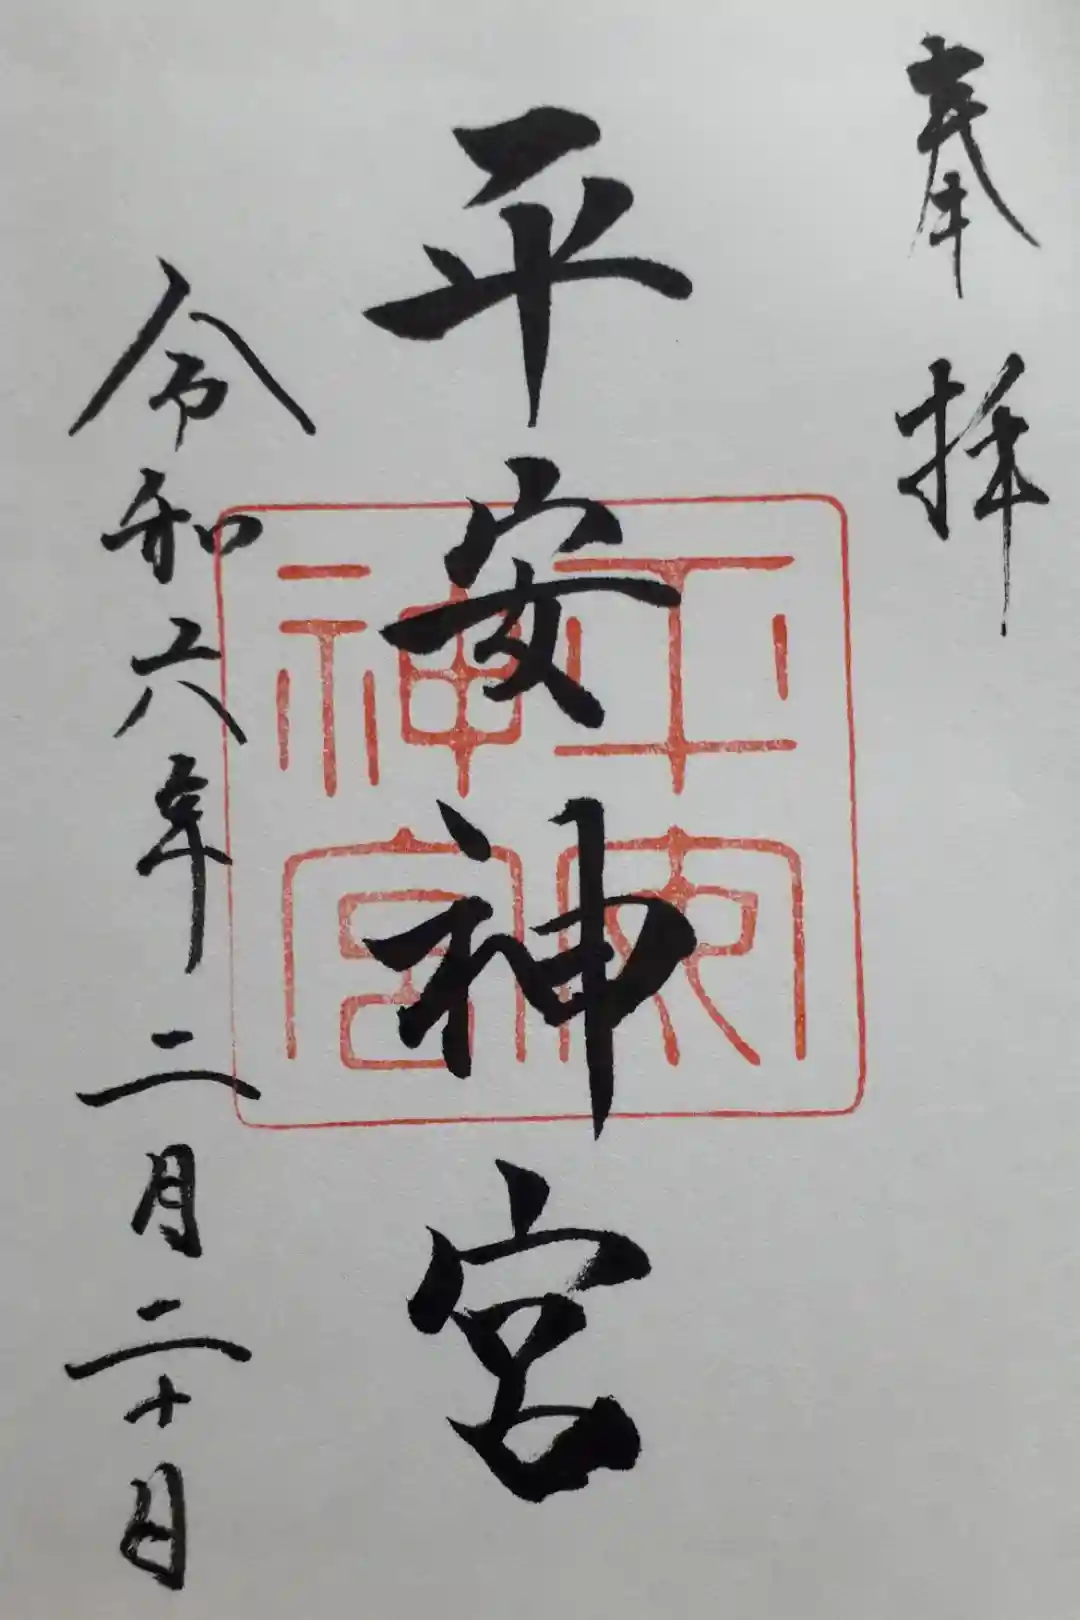 奉拝
平安神宮
平安神宮
令和六年二月二十日